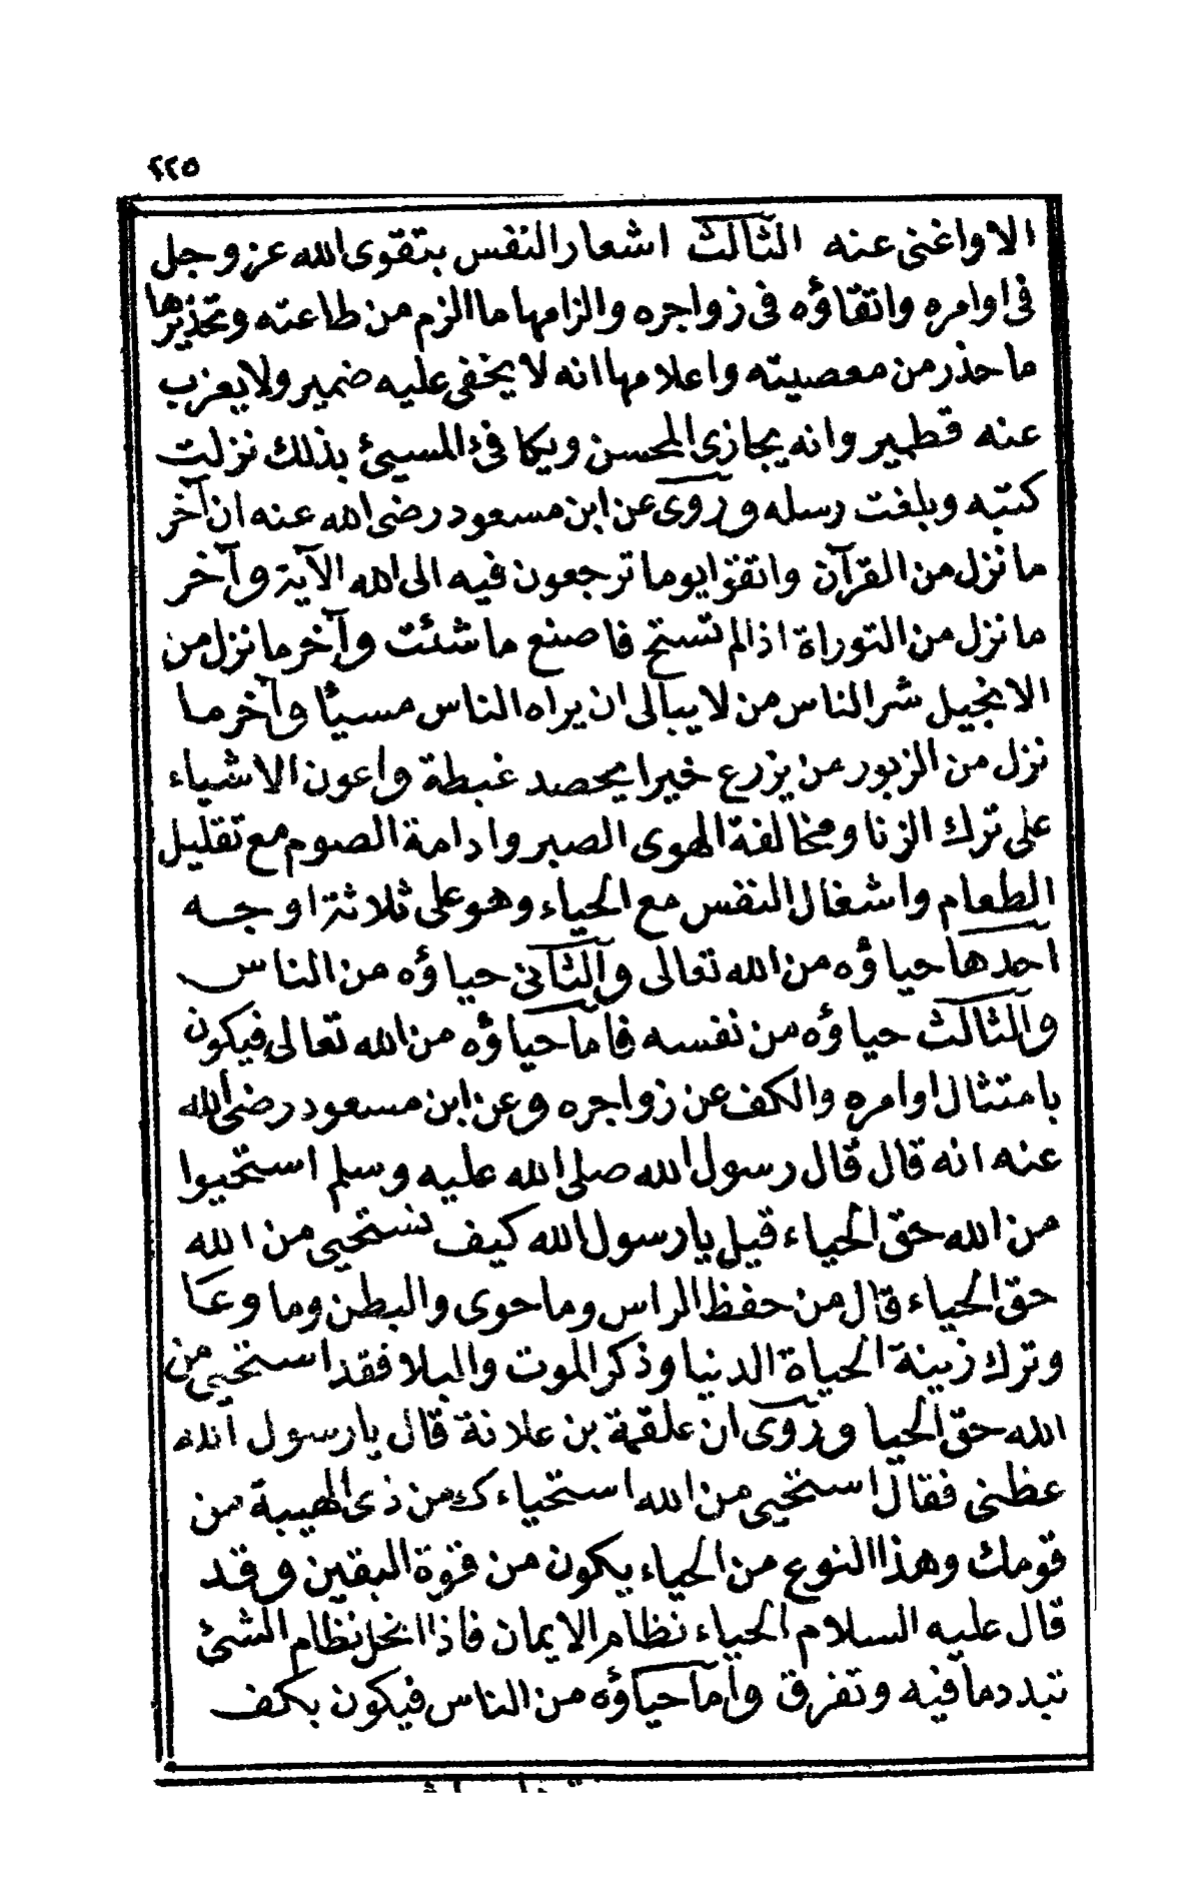 ٢٢٥
الا واغنى عنه الثالث اشعار النفس بتقوى الله عز وجل
فى اوامره واتقاؤه فى زواجره والزامها ما الزم من طاعته وتحذيرها
ما حذر من معصيته واعلامها انه لا يخفى عليه ضمير ولا يعزب
عنه قطمير وانه يجازى المحسن ويكافئ المسيئ بذلك نزلت
كتبه وبلغت رسله وروى عن ابن مسعود رضى الله عنه ان آخر
ما نزل من القرآن واتقوا يوما ترجعون فيه الى الله الآية وآخر
ما نزل من التوراة اذا لم تستح فاصنع ما شئت وآخر ما نزل من
الانجيل شر الناس من لا يبالى ان يراه الناس مسيئا وآخر ما
نزل من الزبور من يزرع خيرا يحصد غبطة واعون الاشياء
على ترك الزنا ومخالفة الهوى الصبر وادامة الصوم مع تقليل
الطعام واشغال النفس مع الحياء وهو على ثلاثة اوجه
احدها حياؤه من الله تعالى والثانى حياؤه من الناس
والثالث حياؤه من نفسه فاما حياؤه من الله تعالى فيكون
بامتثال اوامره والكف عن زواجره وعن ابن مسعود رضى الله
عنه انه قال قال رسول الله صلى الله عليه وسلم استحيوا
من الله حق الحياء قيل يا رسول الله كيف نستحيى من الله
حق الحياء قال من حفظ الراس وما حوى والبطن وما وعا
وترك زينة الحياة الدنيا وذكر الموت والبلا فقد استحيى من
الله حق الحيا وروى ان علقمة بن علاثة قال يا رسول الله
عظنى فقال استحيى من الله استحياءك من ذى الهيبة من
قومك وهذا النوع من الحياء يكون من قوة اليقين وقد
قال عليه السلام الحياء نظام الايمان فاذا انحل نظام الشئ
تبدد ما فيه وتفرق واما حياؤه من الناس فيكون بكف